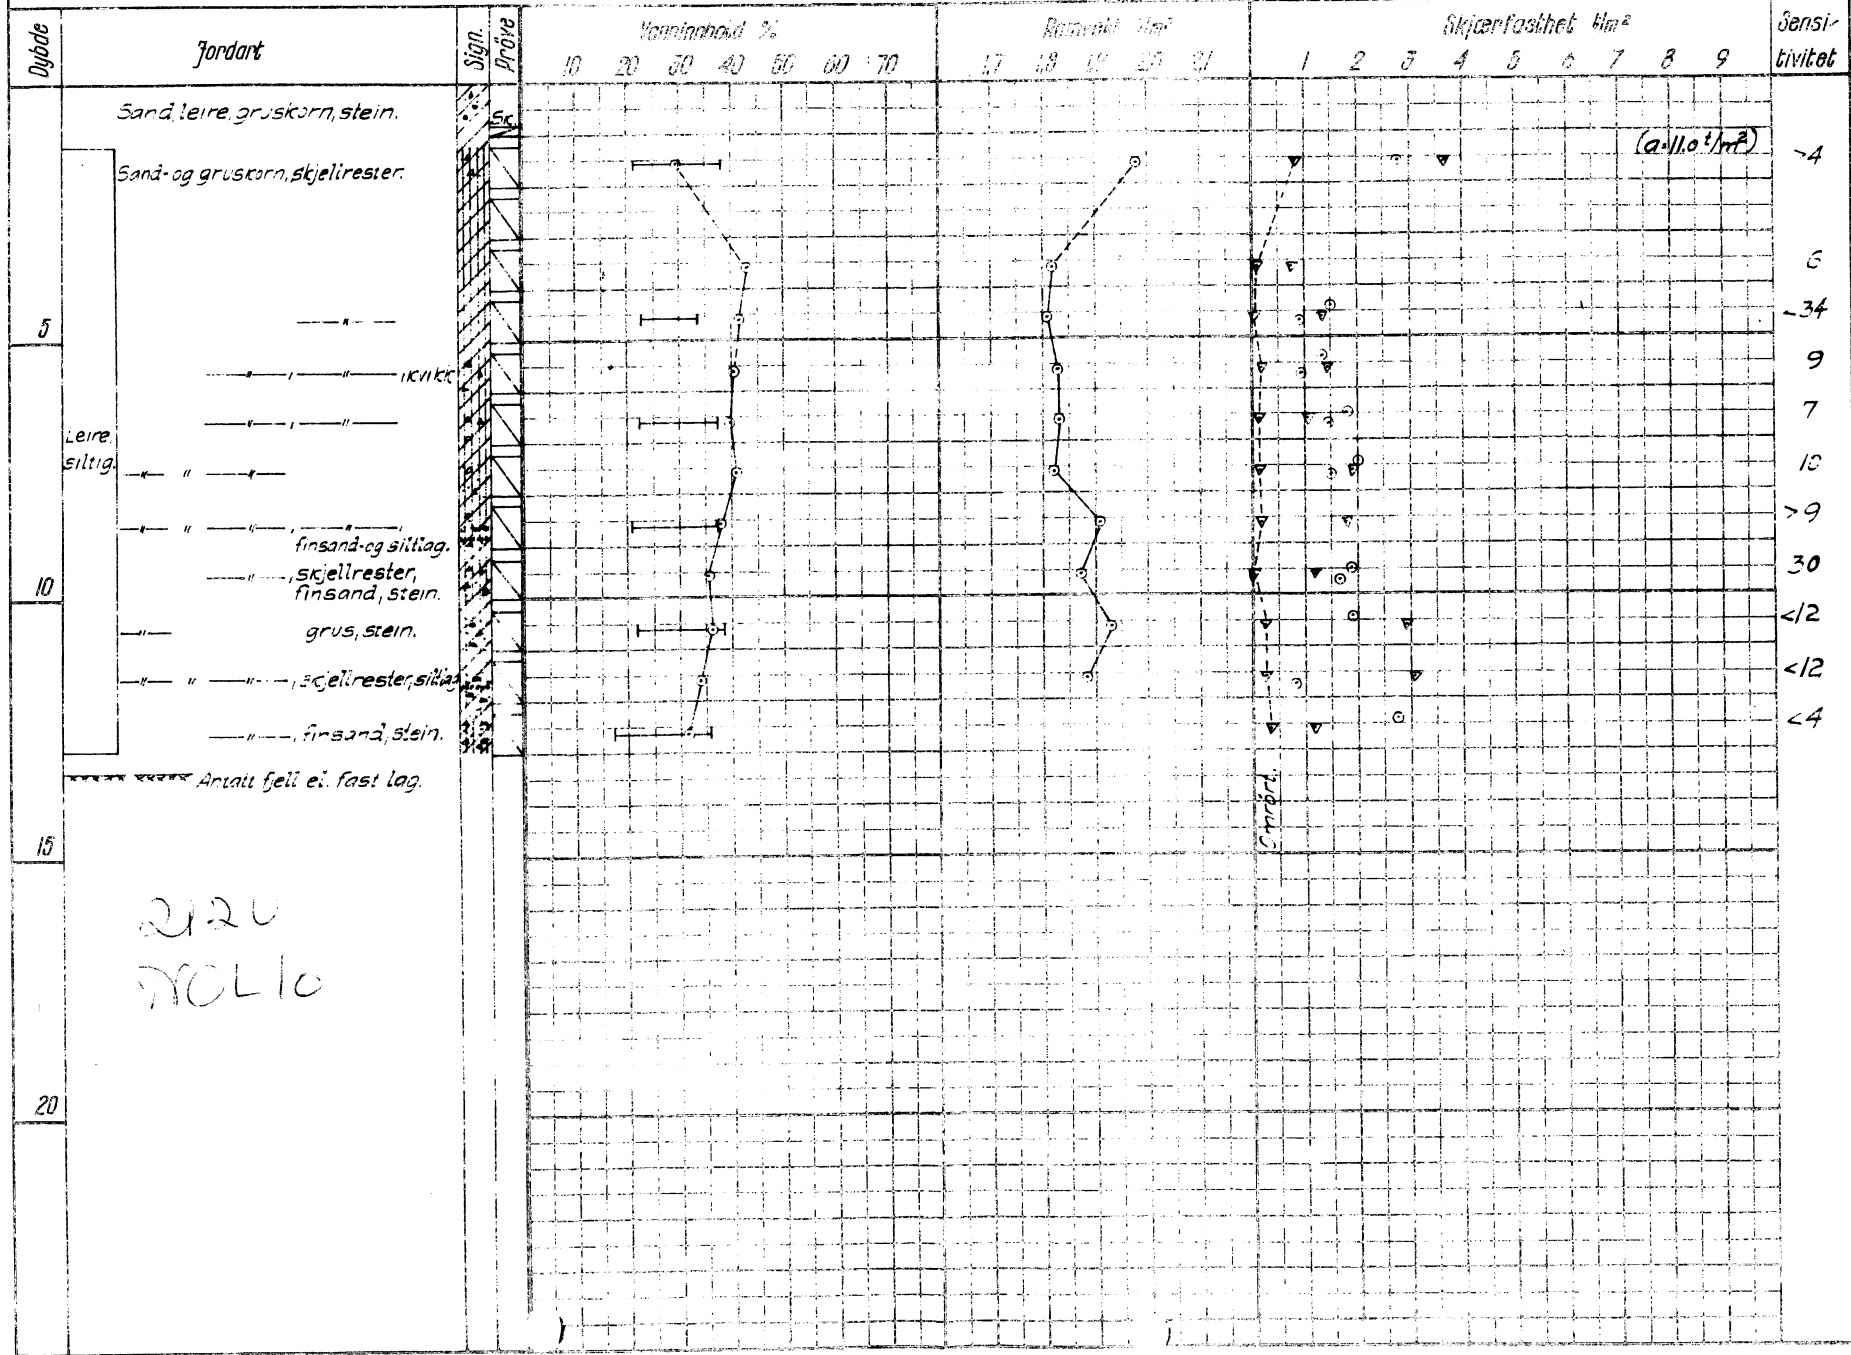 Dybde
Jordart
Sign.
Prøve
Vanninnhold %
10 20 30 40 50 60 70
Romvekt t/m³
1,7 1,8 1,9 2,0 2,1
Skjærfasthet t/m²
1 2 3 4 5 6 7 8 9
Sensi-
tivitet
Sand, leire, gruskorn, stein.
Sk.
(a=11.0 t/m²)
>4
Sand- og gruskorn, skjellrester.
6
—"—
34
5
—"—, —"—, kvikk
9
—"—, —"—
7
Leire,
siltig.
—"— " —"—
10
—"— " —"—, —"—,
>9
finsand- og siltlag.
—"—, skjellrester,
30
finsand, stein.
10
—"— grus, stein.
<12
—"— " —"—, skjellrester, siltlag
<12
—"—, finsand, stein.
<4
Antatt fjell el. fast lag.
Omrørt.
15
20